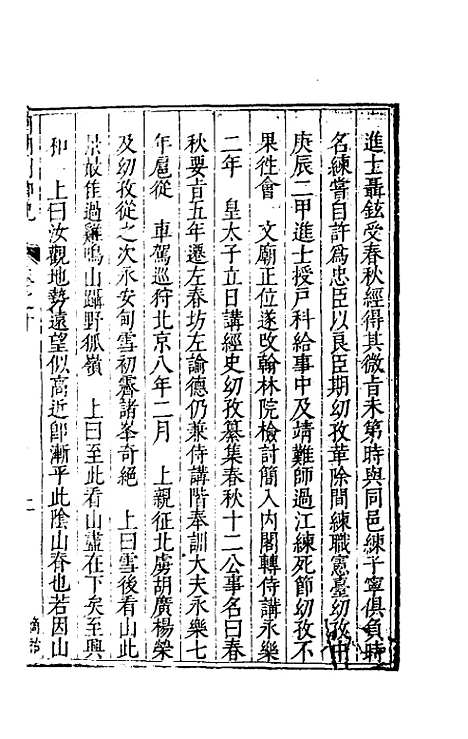 進士聶鉉受春秋經得其微旨未第時與同邑練子寧俱負時
名練嘗自許為忠臣以良臣期幼孜華除間練職憲臺幼孜中
庚辰二甲進士授戸科給事中及靖難師過江練死節幼孜不
果徃會　文廟正位遂改翰林院檢討簡入内閣轉侍講永樂
二年　皇太子立日講經史幼孜纂集春秋十二公事名曰春
秋要旨五年遷左春坊左諭德仍兼侍講階奉訓大夫永樂七
年扈從　車駕巡狩北京八年二月　上親征北虜胡廣楊榮
及幼孜從之次永安甸雪初霽諸峯奇絕　上曰雪後看山此
景最佳過雞鳴山躡野狐嶺　上曰至此看山盡在下矣至興
和　上曰汝觀地勢遠望似高近卽漸平此陰山脊也若因山